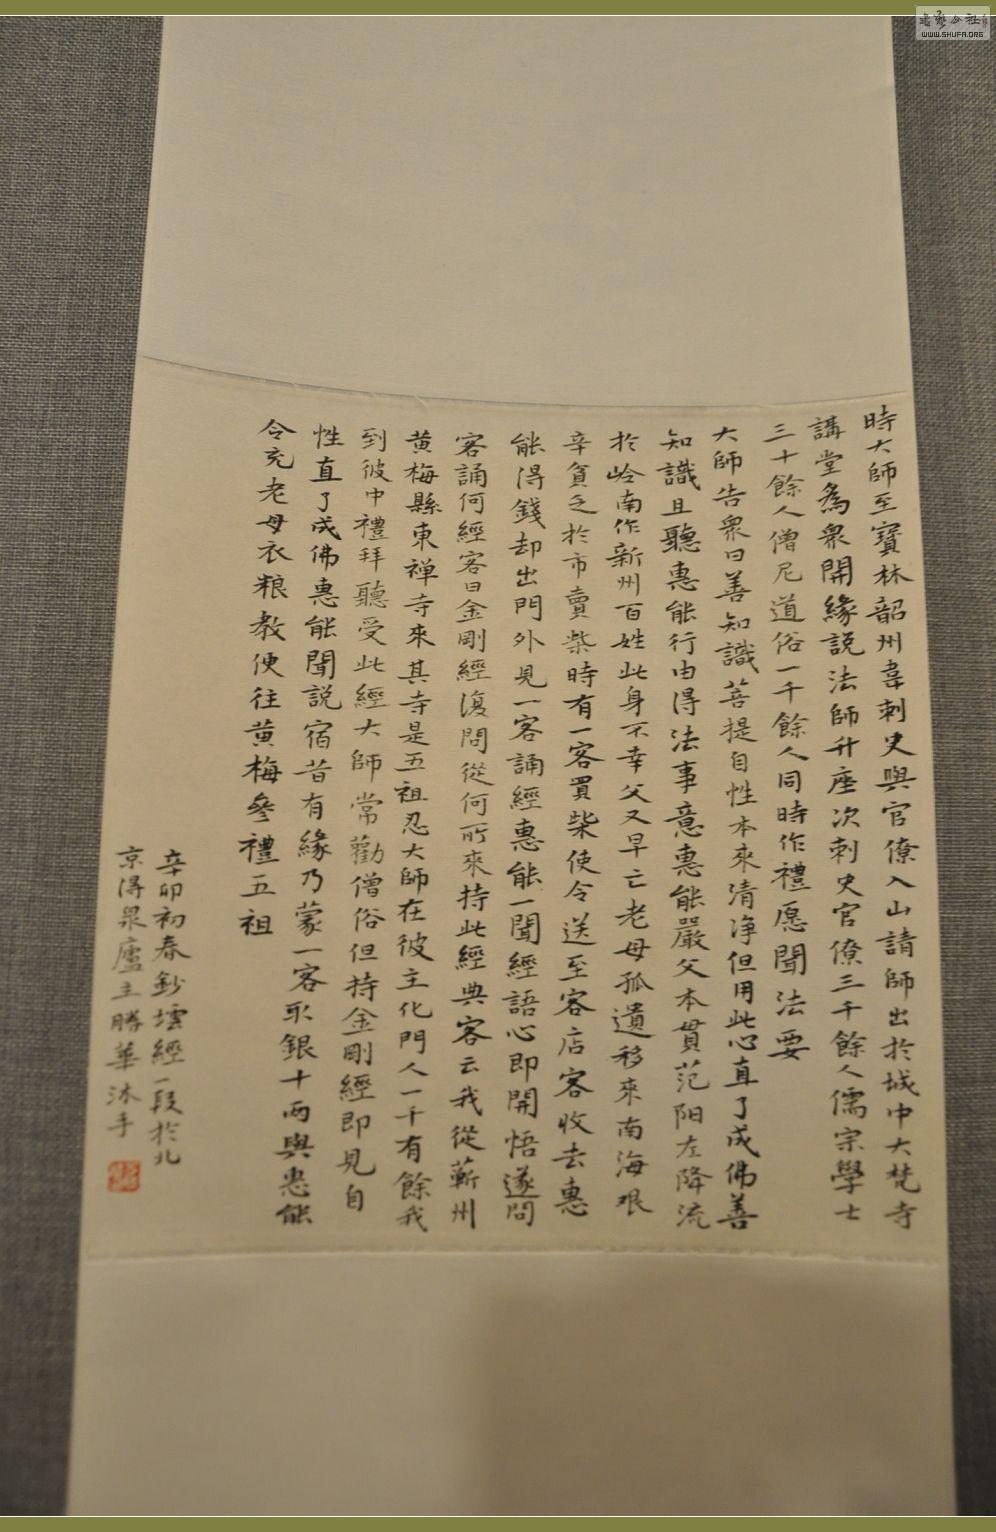 時大師至寶林韶州韋刺史與官僚入山請師出於城中大梵寺
講堂為衆開緣説法師升座次刺史官僚三千餘人儒宗學士
三十餘人僧尼道俗一千餘人同時作禮愿聞法要
大師告衆曰善知識菩提自性本來清净但用此心直了成佛善
知識且聽惠能行由得法事意惠能嚴父本貫范阳左降流
於岭南作新州百姓此身不幸父又早亡老母孤遺移來南海艰
辛貧乏於市賣柴時有一客買柴使令送至客店客收去惠
能得錢却出門外見一客誦經惠能一聞經語心即開悟遂問
客誦何經客曰金剛經復問從何所來持此經典客云我從蘄州
黄梅縣東禅寺來其寺是五祖忍大師在彼主化門人一千有餘我
到彼中禮拜聽受此經大師常勸僧俗但持金剛經即見自
性直了成佛惠能聞説宿昔有緣乃蒙一客取銀十両與惠能
令充老母衣粮教便往黄梅參禮五祖
辛卯初春鈔壇經一段於北
京得泉廬主勝華沐手
WWW.SHUFA.ORG